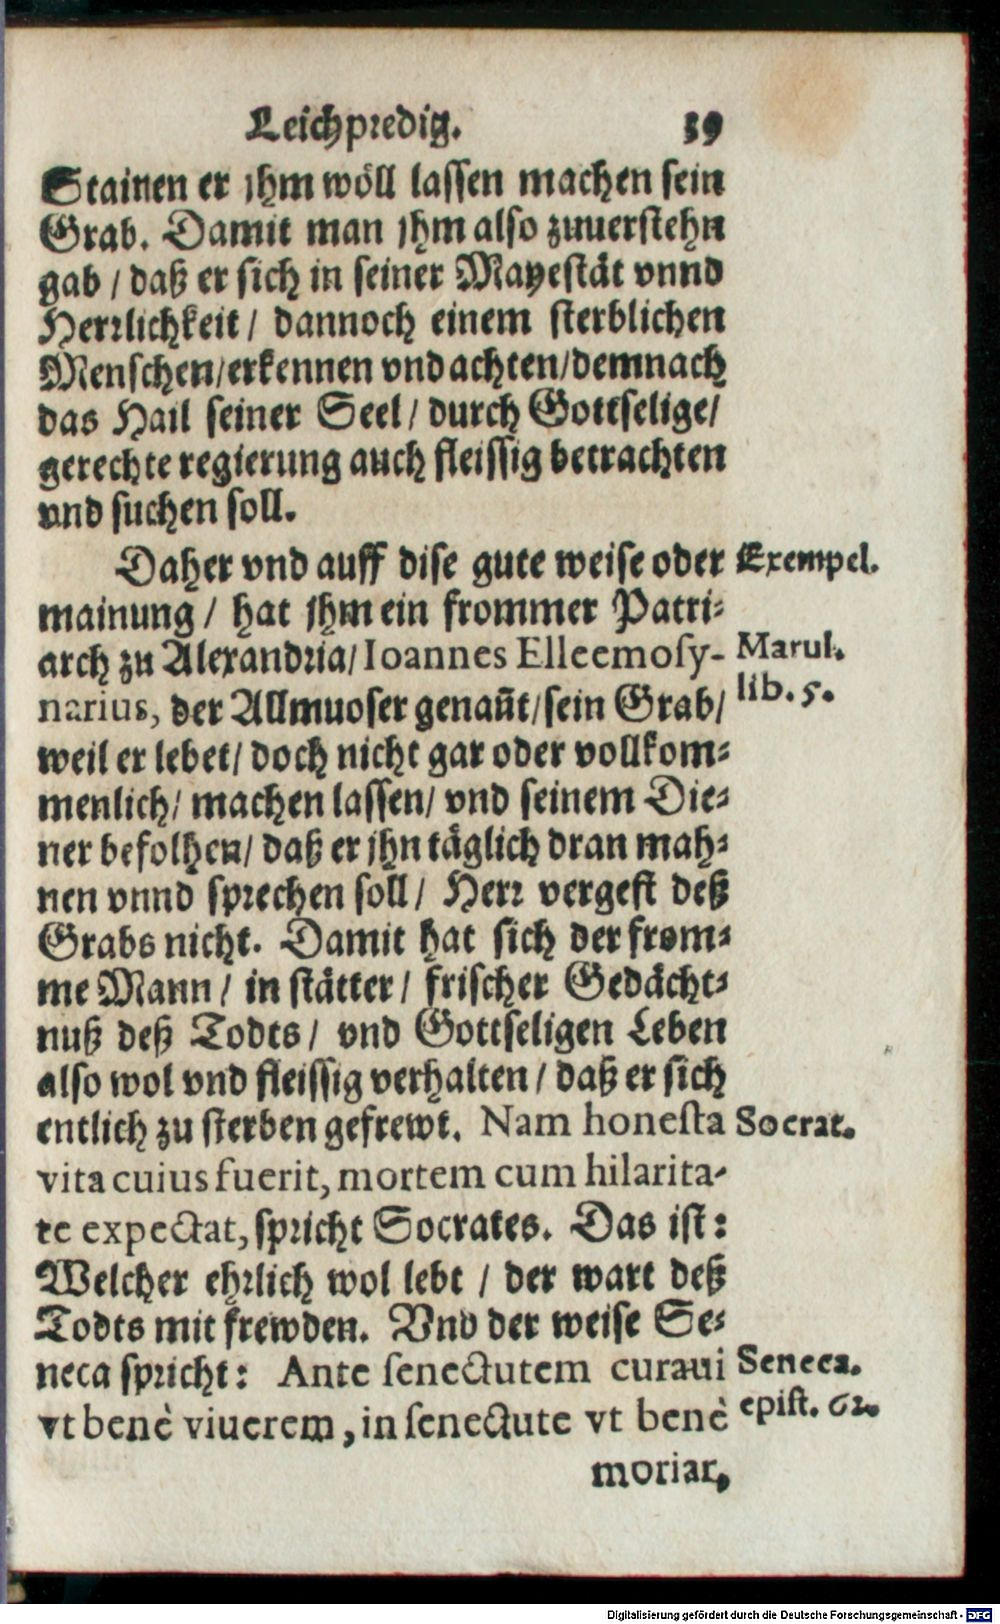 Leichpredig. 39
Stainen er jhm wöll lassen machen sein
Grab. Damit man jhm also zuuerstehn
gab / daß er sich in seiner Mayestät vnnd
Herrlichkeit / dannoch einem sterblichen
Menschen / erkennen vnd achten / demnach
das Hail seiner Seel / durch Gottselige /
gerechte regierung auch fleissig betrachten
vnd suchen soll.
Daher vnd auff dise gute weise oder
Exempel.
mainung / hat jhm ein frommer Patri-
arch zu Alexandria / Ioannes Elleemosy-
Marul.
lib. 5.
narius, der Allmuoser genañt / sein Grab /
weil er lebet / doch nicht gar oder vollkom-
menlich / machen lassen / vnd seinem Die-
ner befolhen / daß er jhn täglich dran mah-
nen vnnd sprechen soll / Herr vergest deß
Grabs nicht. Damit hat sich der from-
me Mann / in stätter / frischer Gedächt-
nuß deß Todts / vnd Gottseligen Leben
also wol vnd fleissig verhalten / daß er sich
entlich zu sterben gefrewt. Nam honesta
Socrat.
vita cuius fuerit, mortem cum hilarita-
te expectat, spricht Socrates. Das ist:
Welcher ehrlich wol lebt / der wart deß
Todts mit frewden. Vnd der weise Se-
neca spricht: Ante senectutem curaui
Seneca.
epist. 62.
vt benè viuerem, in senectute vt benè
moriar,
Digitalisierung gefördert durch die Deutsche Forschungsgemeinschaft - DFG